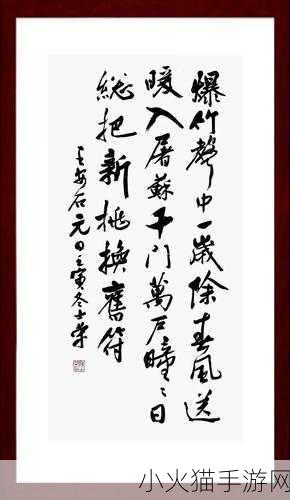 爆竹聲中一歲除春風送
暖入屠蘇千門萬戶曈曈日
總把新桃換舊符
王安石元日壬寅冬士榮
小火猫手游网